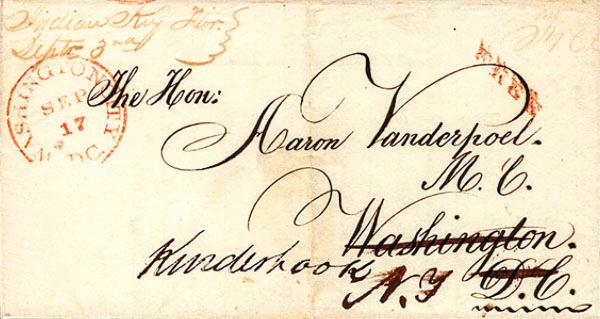 Indian Key Flor.
Septr 3rd
WASHINGTON CITY
SEP
17
D.C.
FREE
The Hon:
Aaron Vanderpoel.
M. C.
Washington.
D. C.
Kinderhook
N.Y